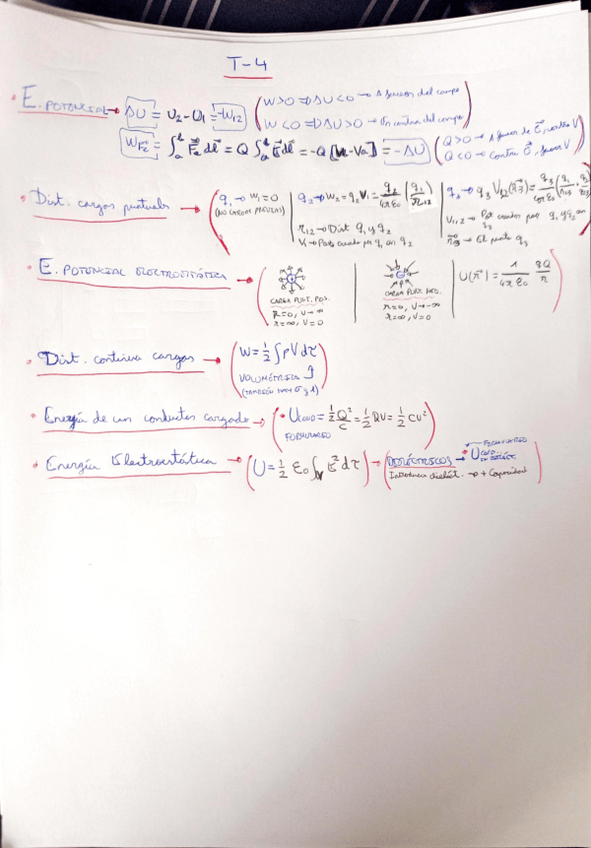 T-4
• E. POTENCIAL → ΔU = U₂ - U₁ = -W₁₂ (W>0 ⇒ ΔU<0 → A favor del campo
W<0 ⇒ ΔU>0 → En contra del campo)
W_Fe = ∫ₐᵇ F⃗e dl⃗ = Q ∫ₐᵇ E⃗ dl⃗ = -Q [Vb - Va] = -ΔU (Q>0 → A favor de E⃗, contra V
Q<0 → Contra E⃗, favor V)
• Dist. cargas puntuales → (q₁ → W₁=0 | q₂ → W₂ = q₂ V₁ = q₂/4πε₀ (q₁/r₁₂) | q₃ → q₃ V₁₂(r⃗₃) = q₃/4πε₀ (q₁/r₁₃ +
(NO CARGAS PREVIAS)
r₁₂ → Dist q₁ y q₂
V₁ → Pot creado por q₁ en q₂
V₁,₂ → Pot creado por q₁ y q₂ en q₃
r⃗₃ → El punto q₃
• E. POTENCIAL ELECTROSTÁTICA →
CARGA PUNT. POS.
R=0, V→∞
r=∞, V=0
CARGA PUNT. NEG.
r=0, V→-∞
r=∞, V=0
U(r⃗) = 1/4πε₀ qQ/r
• Dist. continua cargas → (W = ½ ∫ρVdτ
VOLUMÉTRICA
(TAMBIÉN para σ y λ)
• Energía de un conductor cargado → (• U_COND = ½ Q²/C = ½ QV = ½ CV²)
FORMULARIO
• Energía Electrostática → (U = ½ ε₀ ∫ᵥ E² dτ) → (DIELÉCTRICOS → U
FORMULARIO
Introducir dieléct. → + Capacidad)